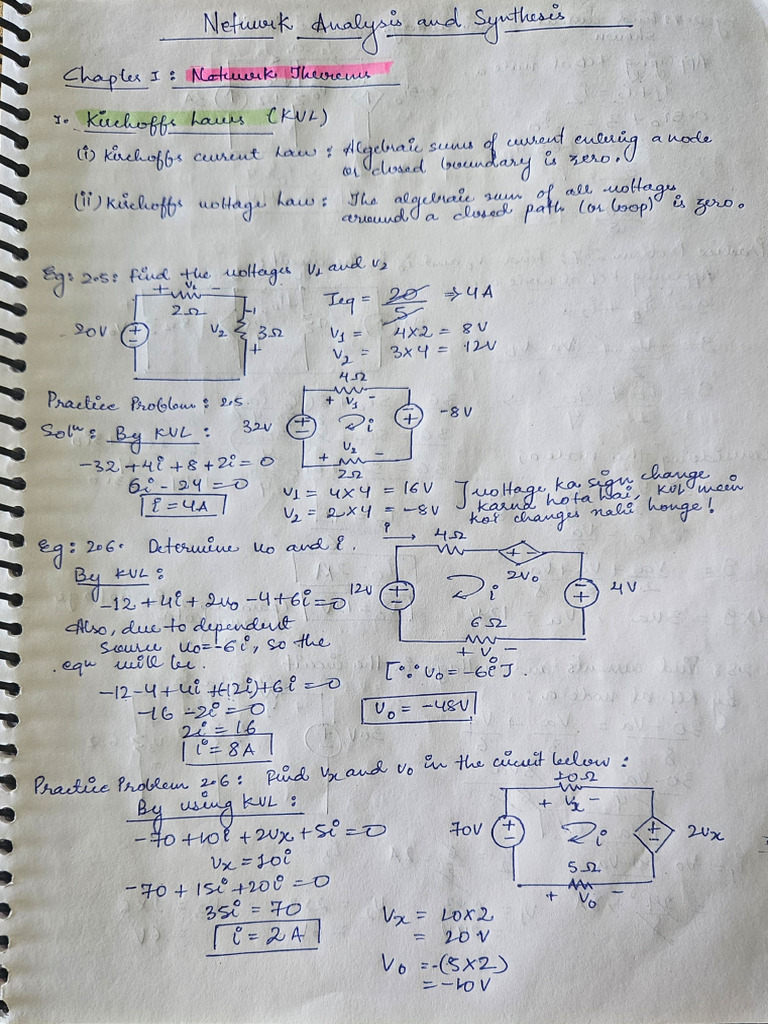 Network Analysis and Synthesis
Chapter I : Network Theorems
1. Kirchoffs Laws (KVL)
(i) Kirchoffs current Law : Algebraic sums of current entering a node
or closed boundary is zero.
(ii) Kirchoffs voltage Law : The algebraic sum of all voltages
around a closed path (or loop) is zero.
Eg: 2.5: Find the voltages V1 and V2
+ V1 -
2Ω
20V
V2
-
3Ω
+
Ieq = 20/5 ⇒ 4A
V1 = 4×2 = 8V
V2 = 3×4 = 12V
Practice Problem: 2.5
Solⁿ: By KVL :
-32+4i+8+2i=0
6i-24=0
i=4A
4Ω
+ V1 -
32V
i
-8V
+ V2 -
2Ω
V1 = 4×4 = 16V
V2 = 2×4 = -8V
] voltage ka sign change
karna hota hai, KVL mein
koi changes nahi honge!
Eg: 2.6. Determine vo and i.
By KVL:
-12+4i+2vo-4+6i=0
Also, due to dependent
source vo=-6i, so the
equ will be.
-12-4+4i+(-12i)+6i=0
-16-2i=0
2i=16
i=8A
i → 4Ω
2Vo
12V
i
4V
6Ω
+ V -
[∵ Vo=-6i].
Vo = -48V
Practice Problem 2.6: Find Vx and Vo in the circuit below :
By using KVL :
-70+10i+2Vx+5i=0
Vx=10i
-70+15i+20i=0
35i=70
i=2A
10Ω
+ Vx -
70V
i
2Vx
5Ω
+ Vo -
Vx = 10×2
= 20V
Vo =-(5×2)
=-10V